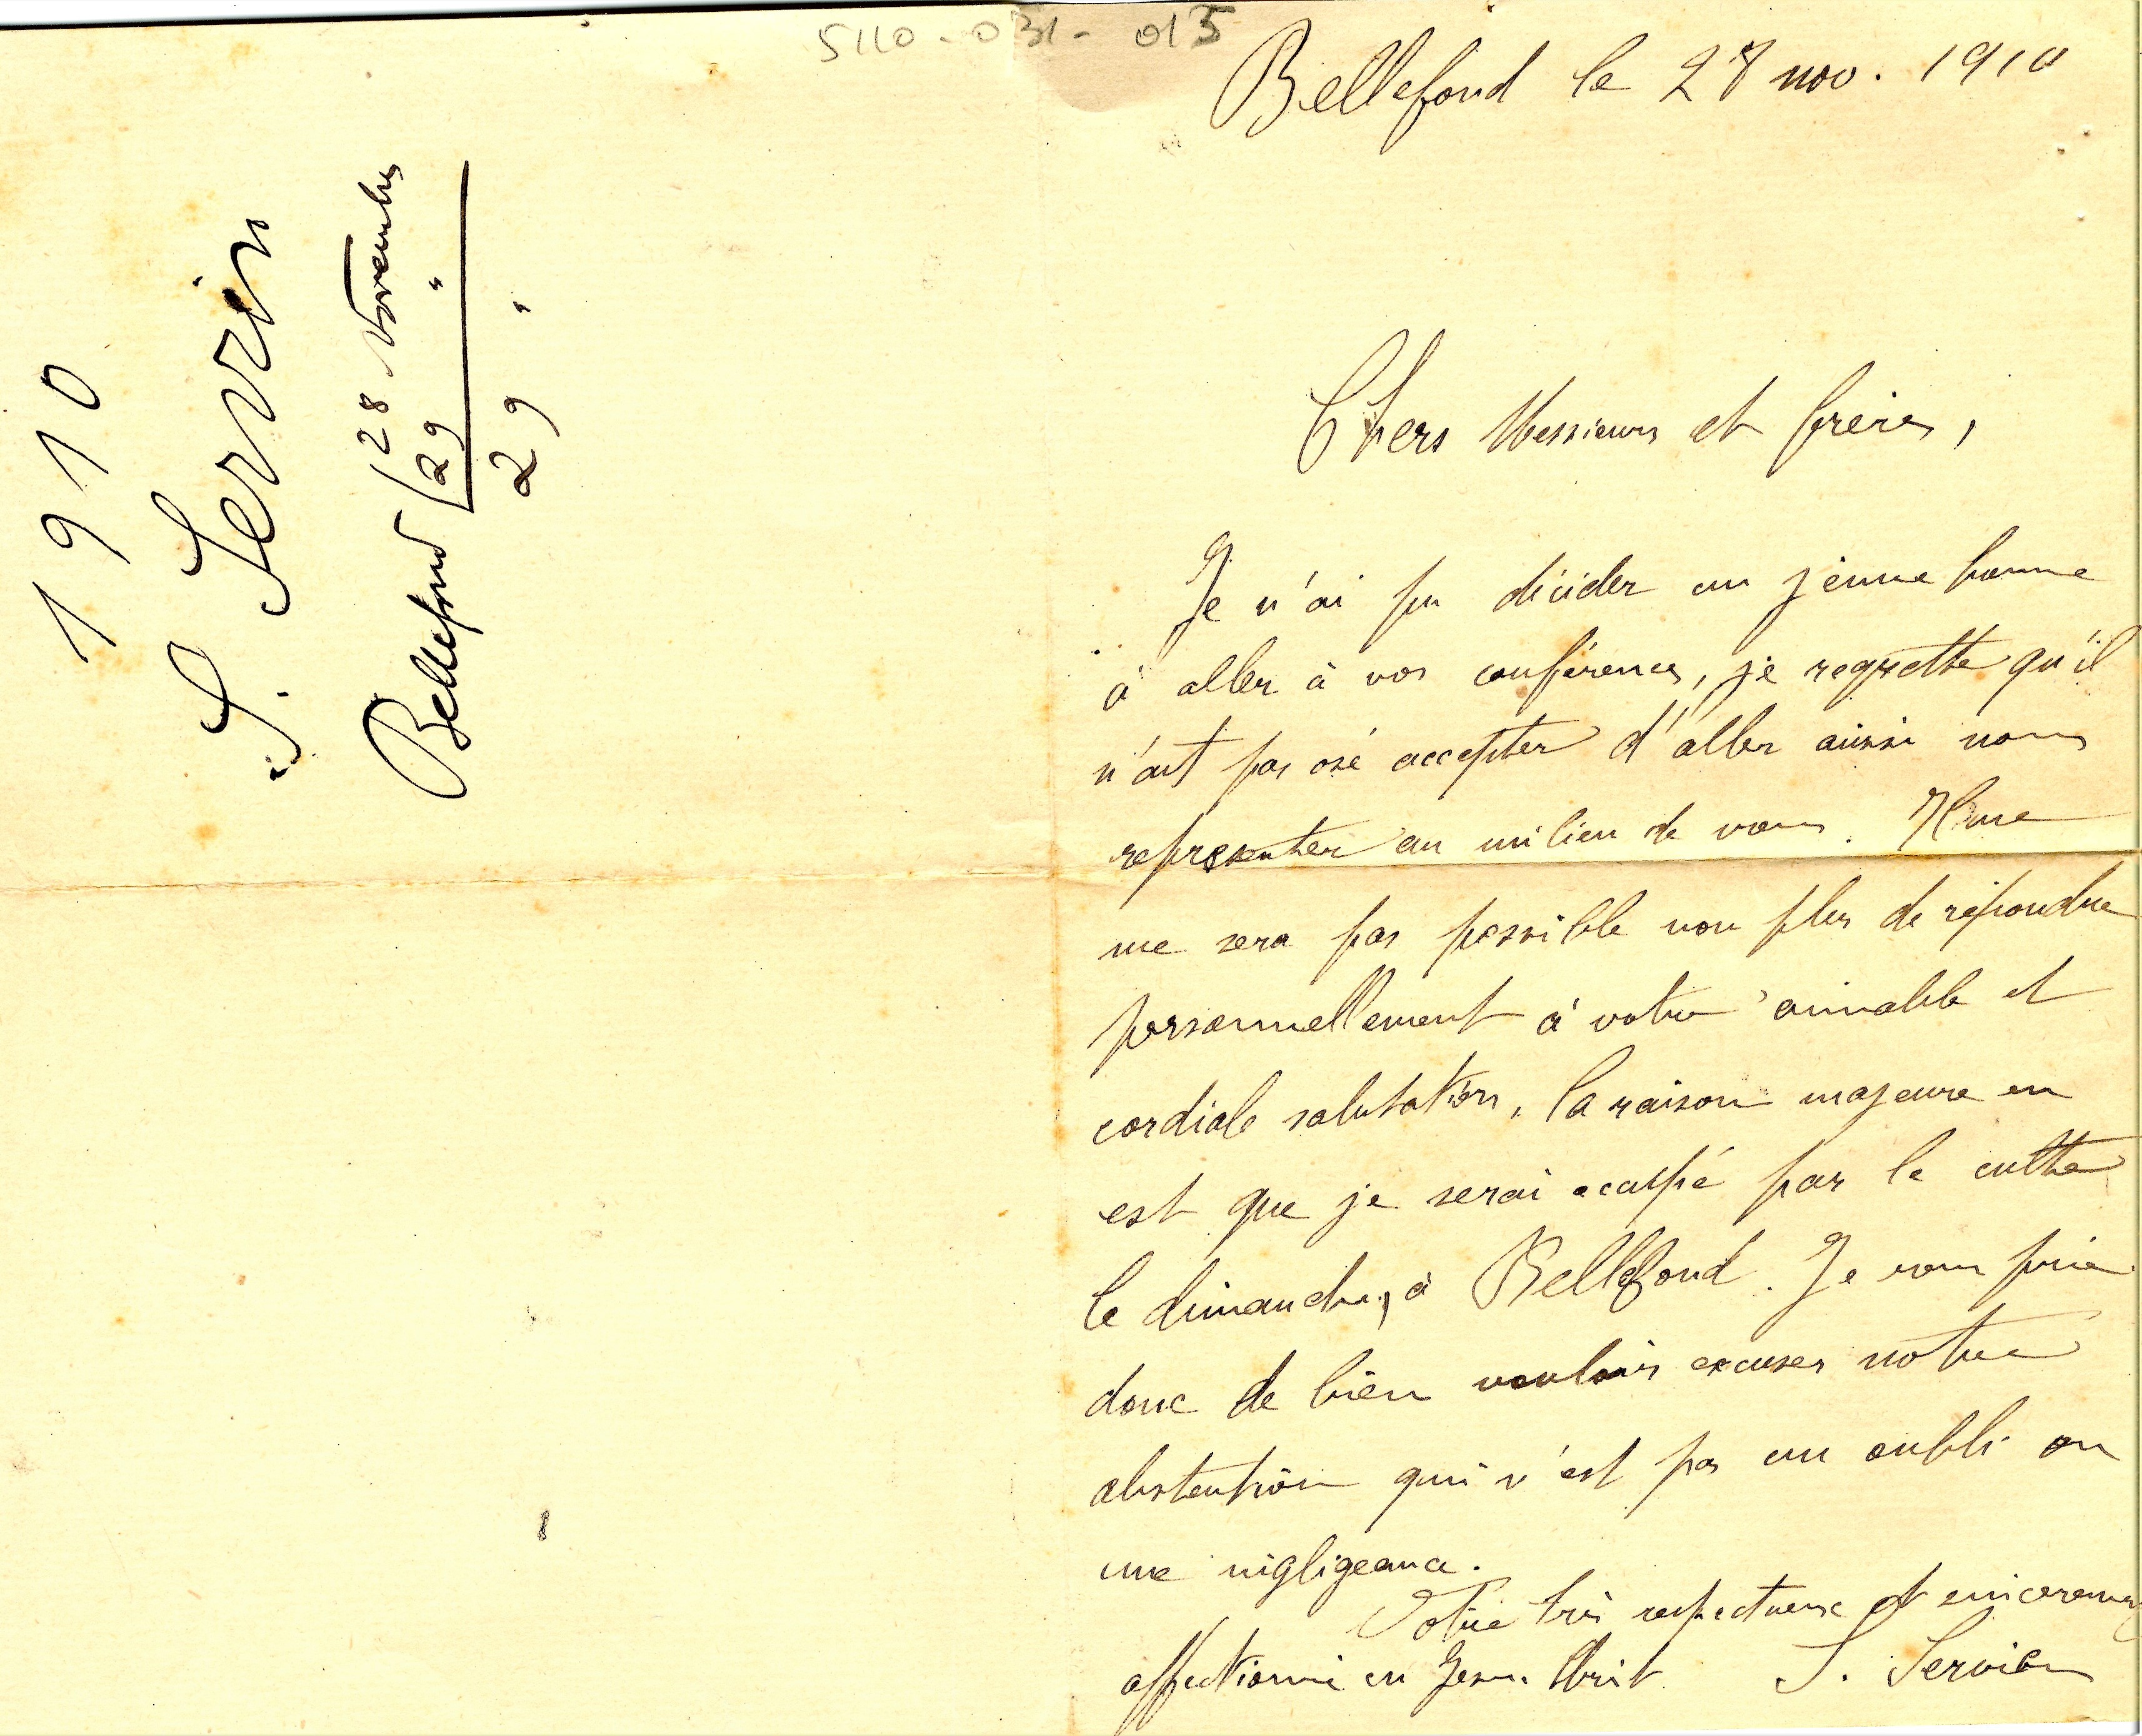 5110-031-015
1910
S. Servien
Bellefond 28 Novembre
29 "
29 "
Bellefond le 28 nov. 1910
Chers Messieurs et frères,
Je n'ai pu décider un jeune homme
à aller à vos conférences, je regrette qu'il
n'ait pas osé accepter d'aller aussi nous
représenter au milieu de vous. Il ne
me sera pas possible non plus de répondre
personnellement à votre aimable et
cordiale salutation, la raison majeure en
est que je serai occupé par le culte
le dimanche, à Bellefond. Je vous prie
donc de bien vouloir excuser notre
abstention qui n'est pas un oubli ou
une négligeance.
Votre très respectueux et sincèrement
affectionné en Jésus Christ S. Servien